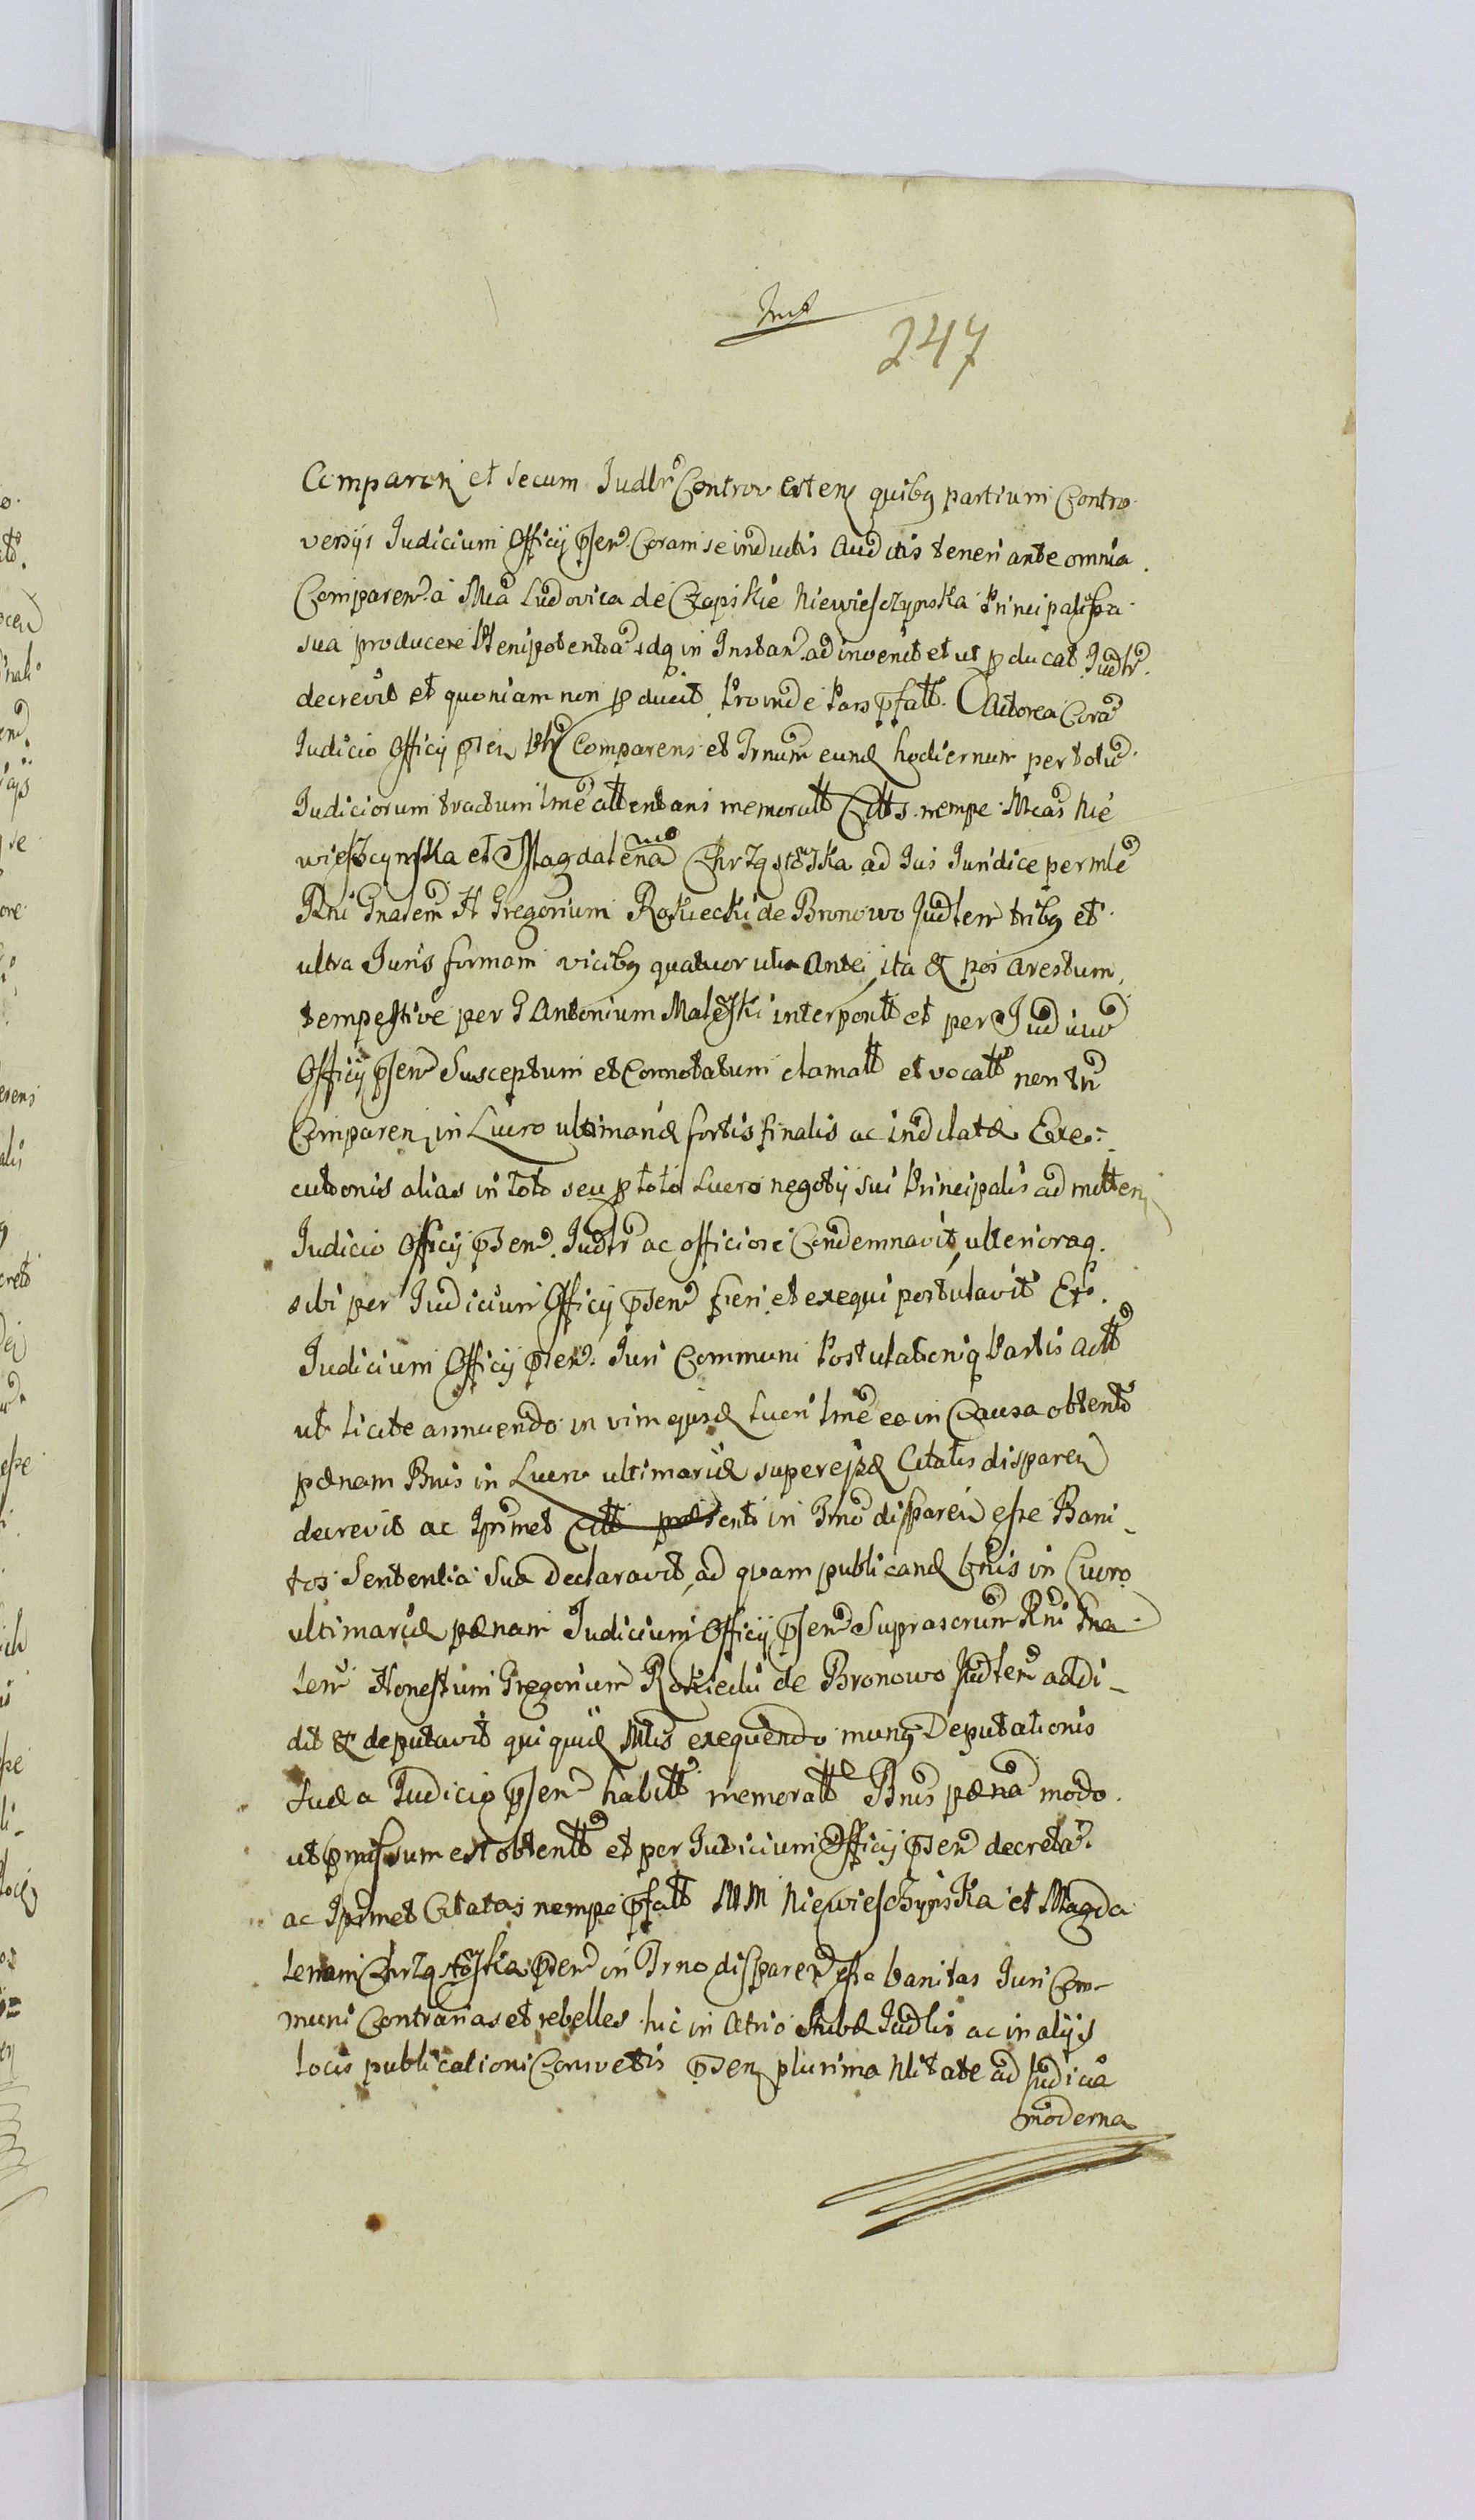 247
Comparen et secum Judlr Controvertens quibq partium Contro
versijs Judicium Officij psen Coram se inductis Auditis teneri ante omnia
Comparen a Mca Ludovica de Czapskie Niewiesczynska Principalissa
sua producere Plenipotentia idq in Instan adinvenit et ut producat Judlr
decrevit et quoniam non producit Proinde Pars pfatt Actorea Cora
Judicio Officij psen Comparens et Trnum eund hodiernum per totu
Judiciorum tractum lme attentans memoratt Citts nempe Mcas Nie
wieszcynska et Magdalena Chrząstoska ad Jus Juridice per mle
Rni Gnalem H Gregorium Rokiecki de Bronowo Judlem tribq et
ultra Juris formam vicibq quatuor uti Ante ita & pos arestum
tempestive per G Antonium Maleski interpositt et per Judiciu
Officij psen Susceptum et Connotatum clamatt et vocatt non tn
Comparen in Lucro ultimariæ fortis finalis ac indilatæ Exe
cutonis alias in toto seu p toto Lucro negotij sui Principalis admitten
Judicio Officij psen Judlr ac officiose Condemnavit, ulterioraq
sibi per Judicium Officij psen fieri et exequi postulavit Et
Judicium Officij psen Juri Communi Postulationiq Partis Actt
ut licite annuendo in vim ejusd Lucri lme ea in Causa obtentt
pænam Bnis in Lucro ultimariæ super ejsd Citatis disparen
decrevit ac Ipsmet in Trno disparen esse Bani
tos Sententia Sua Declaravit, ad quam publicand Bnis in Lucro
ultimariæ pænam Judicium Officij psen Suprascrum Rni Gna
lem Honestum Gregorium Rokiecki de Bronowo Judlem addi
dit & deputavit qui quid Mlis exequendo munq Deputationis
suæ a Judicio psen habitt memoratt Bnis pæna modo
ut pmissum est obtentt et per Judicium Officij psen decreta
ac Ipsmet Citatas nempe pfatt MM Niewiesczynska et Magda
lenam Chrząstoska psen in Trno disparen esse banitas Juri Com
muni Contrarias et rebelles hic in Atrio Stubæ Judlis ac in alijs
locis publicationi Consvetis psen plurima Nlitate ad Judicia
moderna